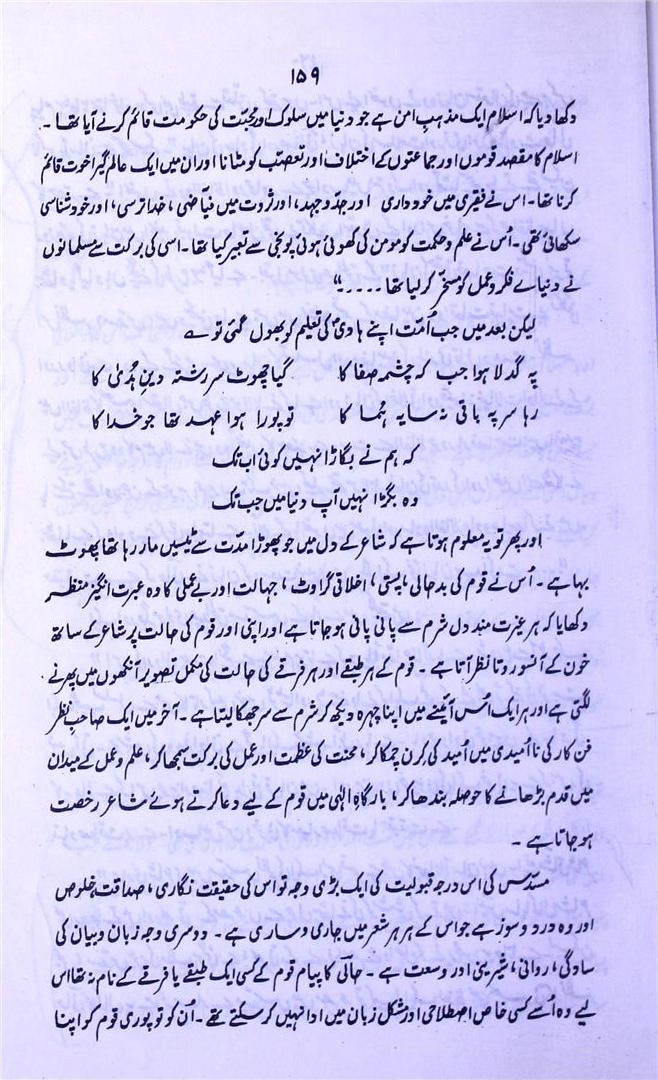 ۱۵۹
دکھا دیا کہ اسلام ایک مذہبِ امن ہے جو دنیا میں سلوک اور محبّت کی حکومت قائم کرنے آیا تھا ۔
اسلام کا مقصد قوموں اور جماعتوں کے اختلاف اور تعصّب کو مٹانا اور ان میں ایک عالم گیر اخوت قائم
کرنا تھا۔ اس نے فقیری میں خود داری اور جدّ و جہد، اور ثروت میں فیّاضی، خدا ترسی، اور خود شناسی
سکھائی تھی۔ اُس نے علم و حکمت کو مومن کی کھوئی ہوئی پونجی سے تعبیر کیا تھا۔ اسی کی برکت سے مسلمانوں
نے دنیاے فکر و عمل کو مسخّر کر لیا تھا ۔۔۔۔۔"
لیکن بعد میں جب اُمّت اپنے ہادیؐ کی تعلیم کو بھول گئی تو ے
پہ گدلا ہوا جب کہ چشمہ صفا کا گیا چھوٹ سر رشتہ دینِ ہُدیٰ کا
رہا سر پہ باقی نہ سایہ ہُما کا تو پورا ہوا عہد تھا جو خدا کا
کہ ہم نے بگاڑا نہیں کوئی اب تک
وہ بگڑا نہیں آپ دنیا میں جب تک
اور پھر تو یہ معلوم ہوتا ہے کہ شاعر کے دل میں جو پھوڑا مدّت سے ٹیسیں مار رہا تھا پھوٹ
بہا ہے ۔ اُس نے قوم کی بد حالی، پستی، اخلاقی گراوٹ، جہالت اور بے عملی کا وہ عبرت انگیز منظر
دکھایا کہ ہر غیرت مند دل شرم سے پانی پانی ہو جاتا ہے اور اپنی اور قوم کی حالت پر شاعر کے ساتھ
خون کے آنسو روتا نظر آتا ہے ۔ قوم کے ہر طبقے اور ہر فرقے کی حالت کی مکمل تصویر آنکھوں میں پھرنے
لگتی ہے اور ہر ایک اس آئینے میں اپنا چہرہ دیکھ کر شرم سے سر جھکا لیتا ہے ۔ آخر میں ایک صاحبِ نظر
فن کار کی نا اُمیدی میں اُمید کی کرن چمکا کر، محنت کی عظمت اور عمل کی برکت سمجھا کر، علم و عمل کے میدان
میں قدم بڑھانے کا حوصلہ بندھا کر، بارگاہِ الٰہی میں قوم کے لیے دعا کرتے ہوئے شاعر رخصت
ہو جاتا ہے ۔
مسدّس کی اس درجہ قبولیت کی ایک بڑی وجہ تو اس کی حقیقت نگاری، صداقت، خلوص
اور وہ درد و سوز ہے جو اس کے ہر ہر شعر میں جاری و ساری ہے ۔ دوسری وجہ زبان و بیان کی
سادگی، روانی، شیرینی اور وسعت ہے ۔ حالؔی کا پیام قوم کے کسی ایک طبقے یا فرقے کے نام نہ تھا اس
لیے وہ اُسے کسی خاص اصطلاحی اور مشکل زبان میں ادا نہیں کر سکتے تھے ۔ اُن کو تو پوری قوم کو اپنا